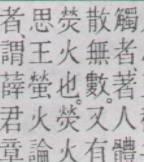 觸者著人體
散無數。又有
熒火也。熒火
思王螢火論
者、謂薛君章